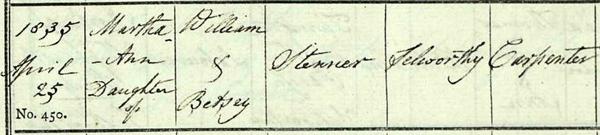 1835
April
25
No. 450.
Martha-
-Ann
Daughter
of
William
&
Betsey
Stenner
Selworthy
Carpenter